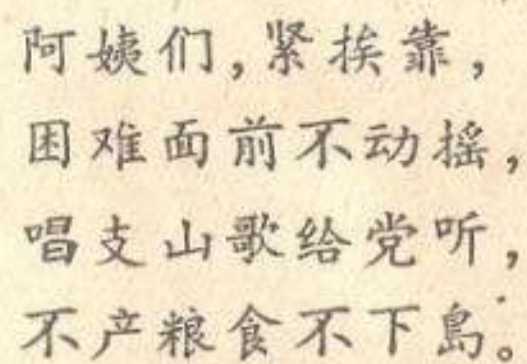 阿姨们,紧挨靠,
困难面前不动摇,
唱支山歌给党听,
不产粮食不下島。